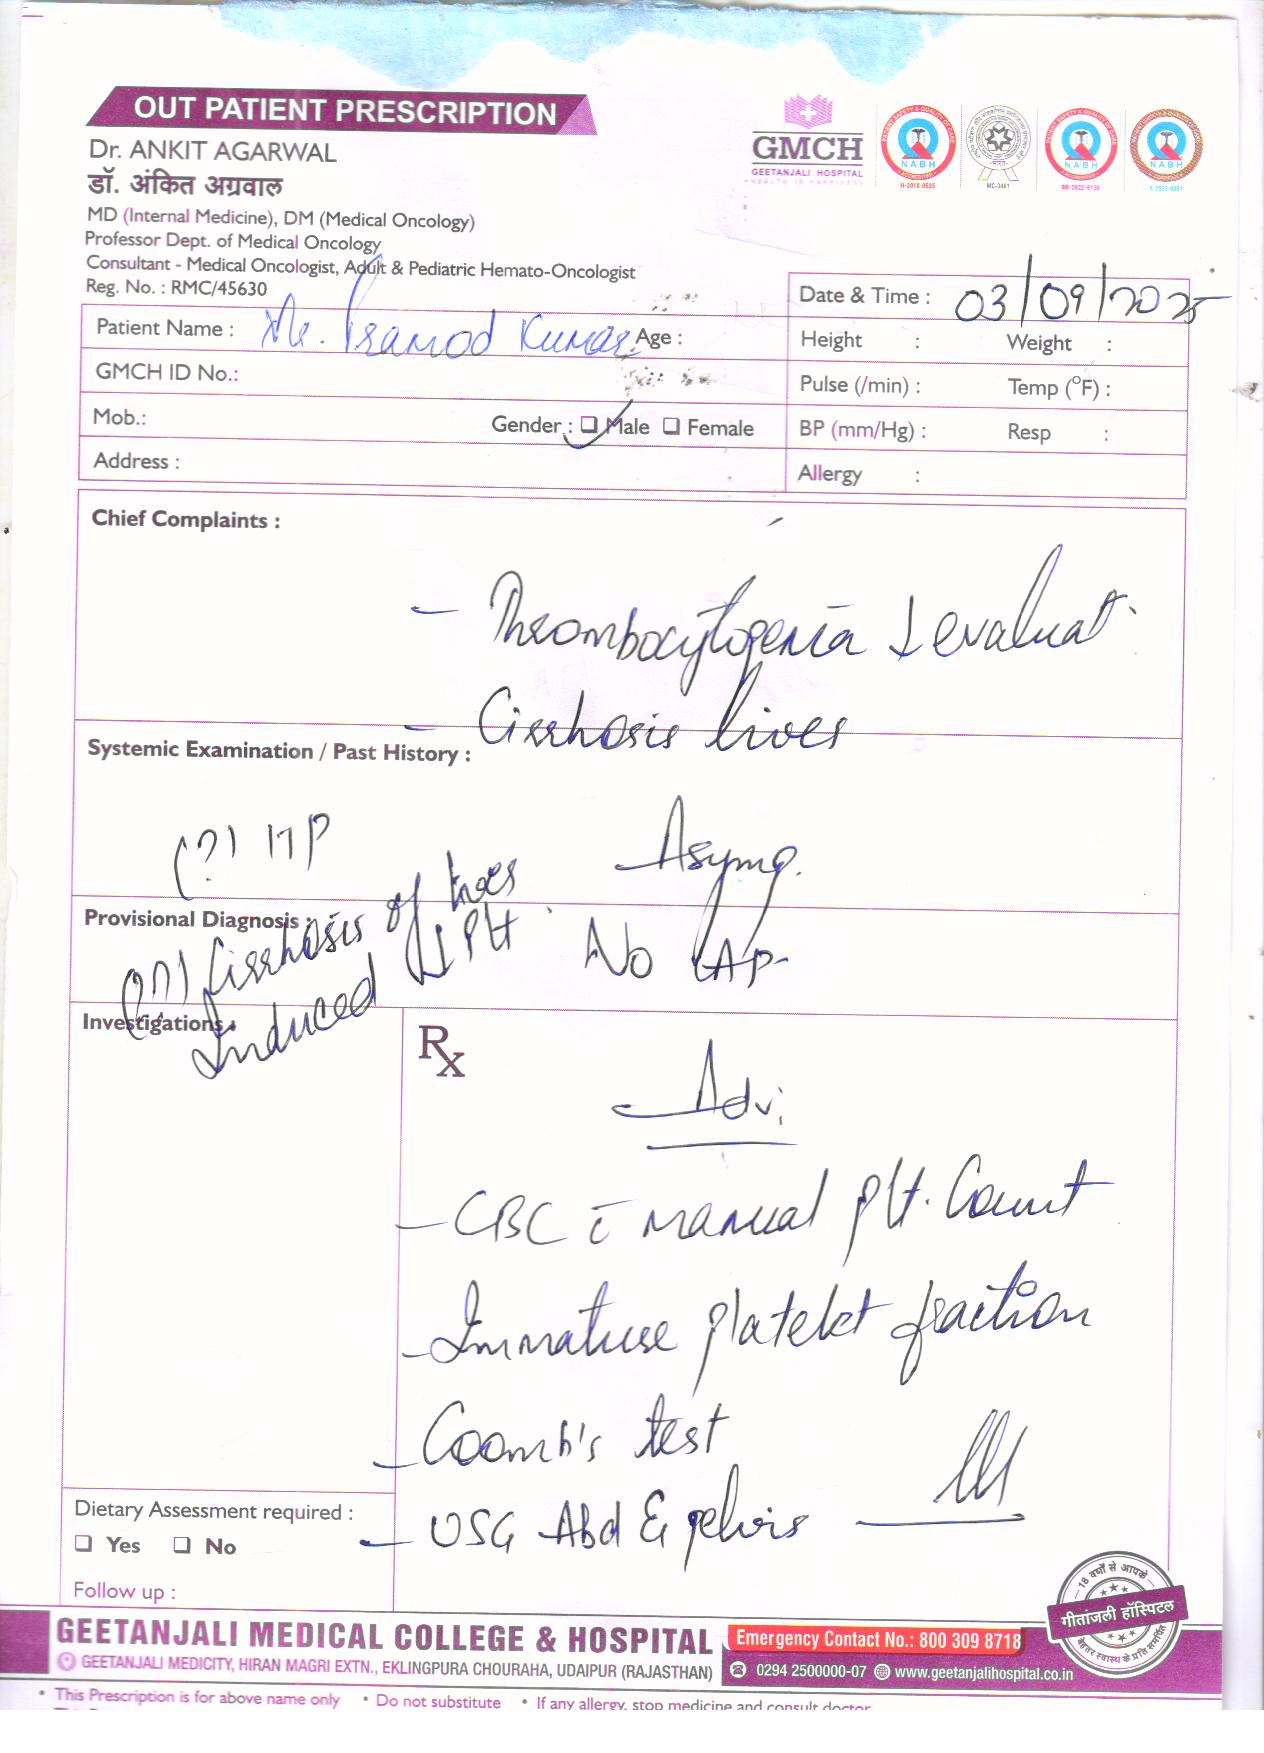 OUT PATIENT PRESCRIPTION
Dr. ANKIT AGARWAL
डॉ. अंकित अग्रवाल
MD (Internal Medicine), DM (Medical Oncology)
Professor Dept. of Medical Oncology
Consultant - Medical Oncologist, Adult & Pediatric Hemato-Oncologist
Reg. No. : RMC/45630
GMCH
GEETANJALI HOSPITAL
HEALTH IS HAPPINESS
NABH
H-2018-0535
MC-3461
NABH
NABH
Date & Time : 03/09/2025
Patient Name : Mr. Pramod Kumar Age :
Height : Weight :
GMCH ID No.:
Pulse (/min) : Temp (°F) :
Mob.: Gender : Male Female
BP (mm/Hg) : Resp :
Address :
Allergy :
Chief Complaints :
- Thrombocytopenia ↓ evaluat.
- Cirrhosis liver
Systemic Examination / Past History :
(?) ITP
- Asymp.
Provisional Diagnosis :
(??) Cirrhosis of liver
Induced ↓ Plt.
No LAP-
Investigations :
Rx
- Adv:
- CBC c̄ manual plt. Count
- Immature platelet fraction
- Coomb's test
- USG Abd & pelvis
Dietary Assessment required :
Yes No
Follow up :
18 वर्षों से आपके
गीतांजली हॉस्पिटल
बेहतर स्वास्थ्य के प्रति समर्पित
GEETANJALI MEDICAL COLLEGE & HOSPITAL
Emergency Contact No.: 800 309 8718
GEETANJALI MEDICITY, HIRAN MAGRI EXTN., EKLINGPURA CHOURAHA, UDAIPUR (RAJASTHAN)
0294 2500000-07 www.geetanjalihospital.co.in
• This Prescription is for above name only • Do not substitute • If any allergy, stop medicine and consult doctor